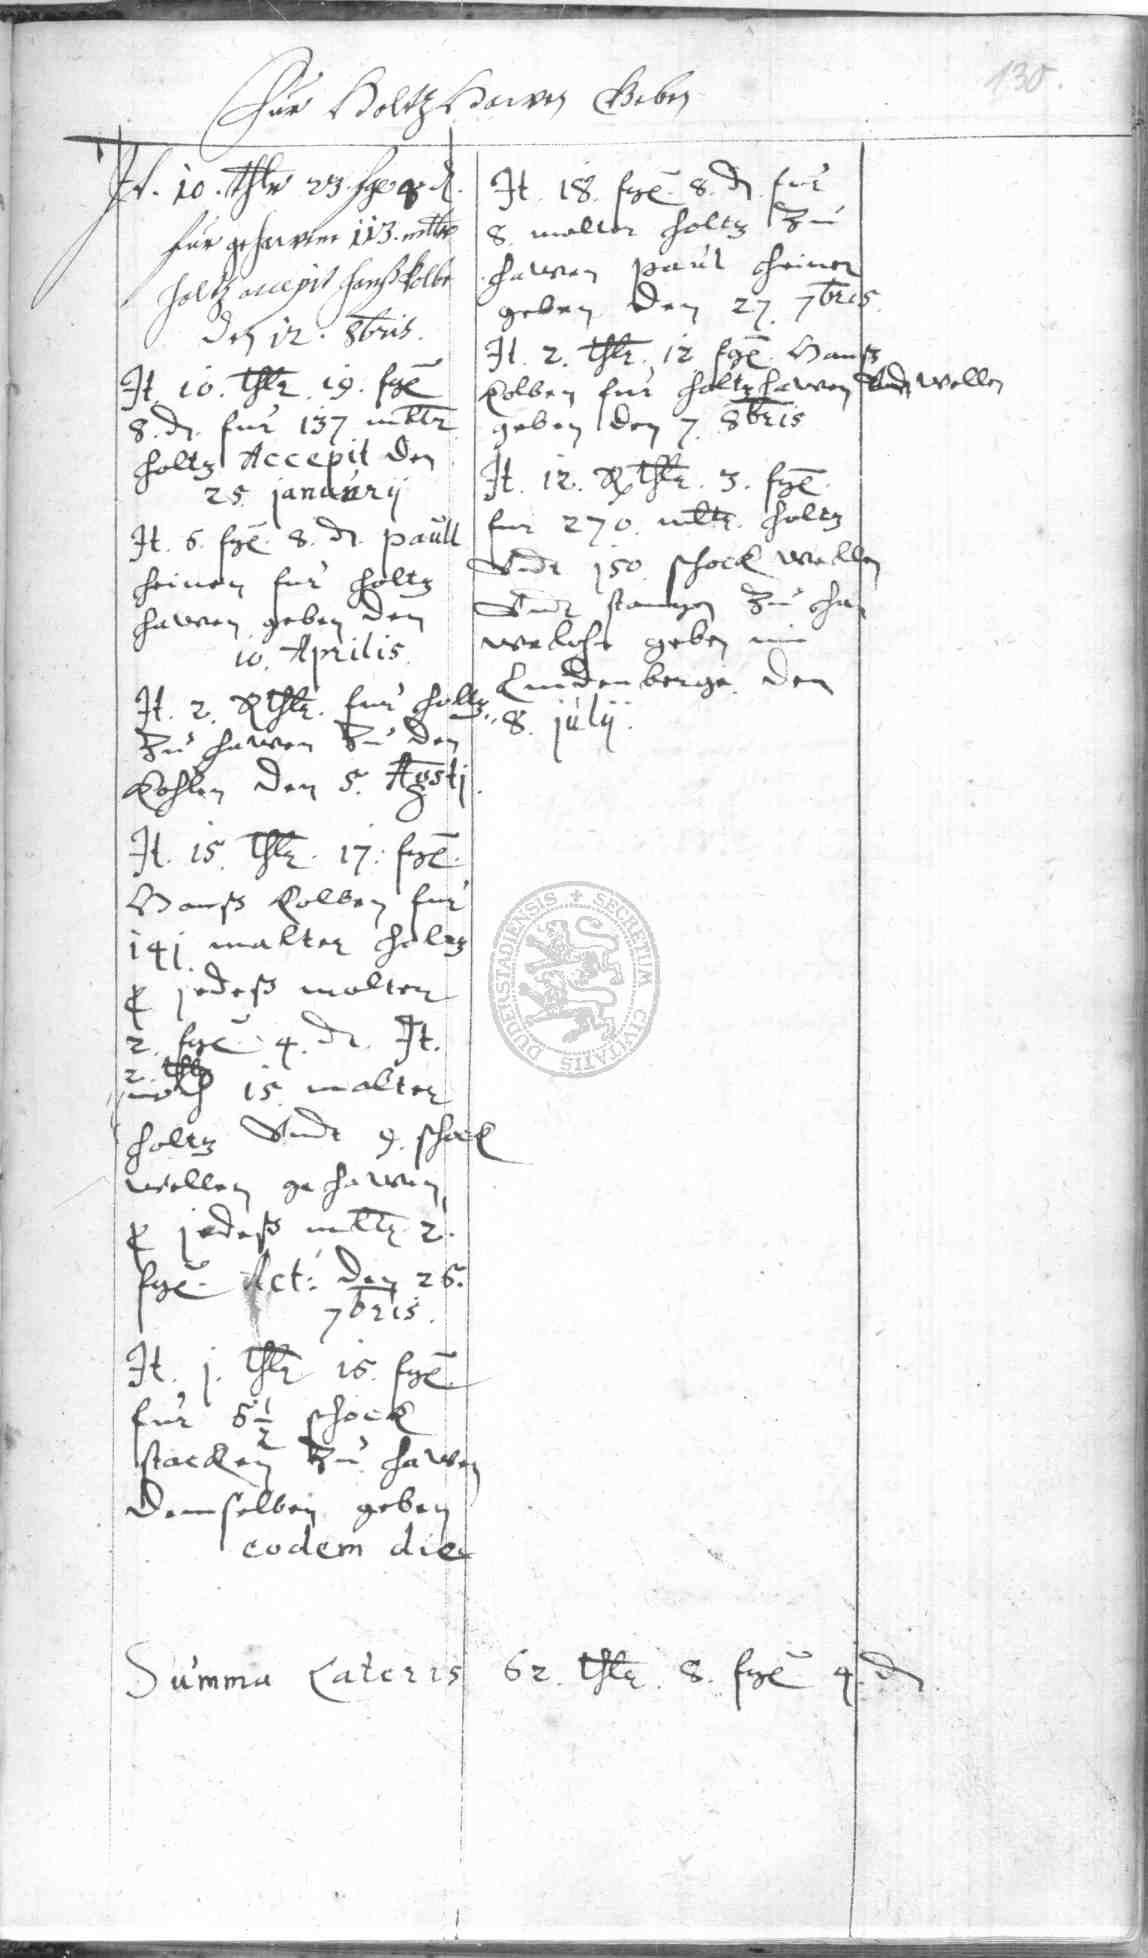 130.
Fur Holtz Hawen Geben
It. 10. thlr 23. sge 8 d.
fur gehawene 113. mltr
holtz accepit Hanß Kolbe
den 12. 8bris.
It. 10. thlr. 19. sge
8. d. fur 137 mltr
holtz Accepit den
25 januarij
It. 6. sge. 8. d. paull
heinen fur holtz
hawen geben den
10. Aprilis.
It. 2. Rthlr. fur holtz
zu hawen zu den
Kohlen den 5. Agsti.
It. 15. thlr. 17. sge.
Hanß Kolben fur
141 malter holtz
p jedeß malter
2. sge. 4. d. It.
2. thlr
noch 15 malter
holtz Undt 9. schock
wellen gehawen
p jedeß mltr 2.
sge. Act: den 26.
7bris.
It. j. thlr 15. sge.
fur 6 1/2 schock
stacken zu hawen
demselben geben
eodem die
It. 18. sge. 8. d. fur
8. malter holtz zu
hawen paul heinen
geben den 27. 7bris.
It. 2. thlr. 12 sge. Hanß
Kolben fur holtzhawen Undt wellen
geben den 7. 8bris
It. 12. Rthlr. 3. sge.
fur 270. mltr. holtz
Undt 150 schock wellen
Undt stangen zu ha
welche geben im
Lindenberge den
8. julij.
Summa Lateris 62. thlr. 8. sge 4. d
DUDERSTADIENSIS + SECRETUM CIVITATIS